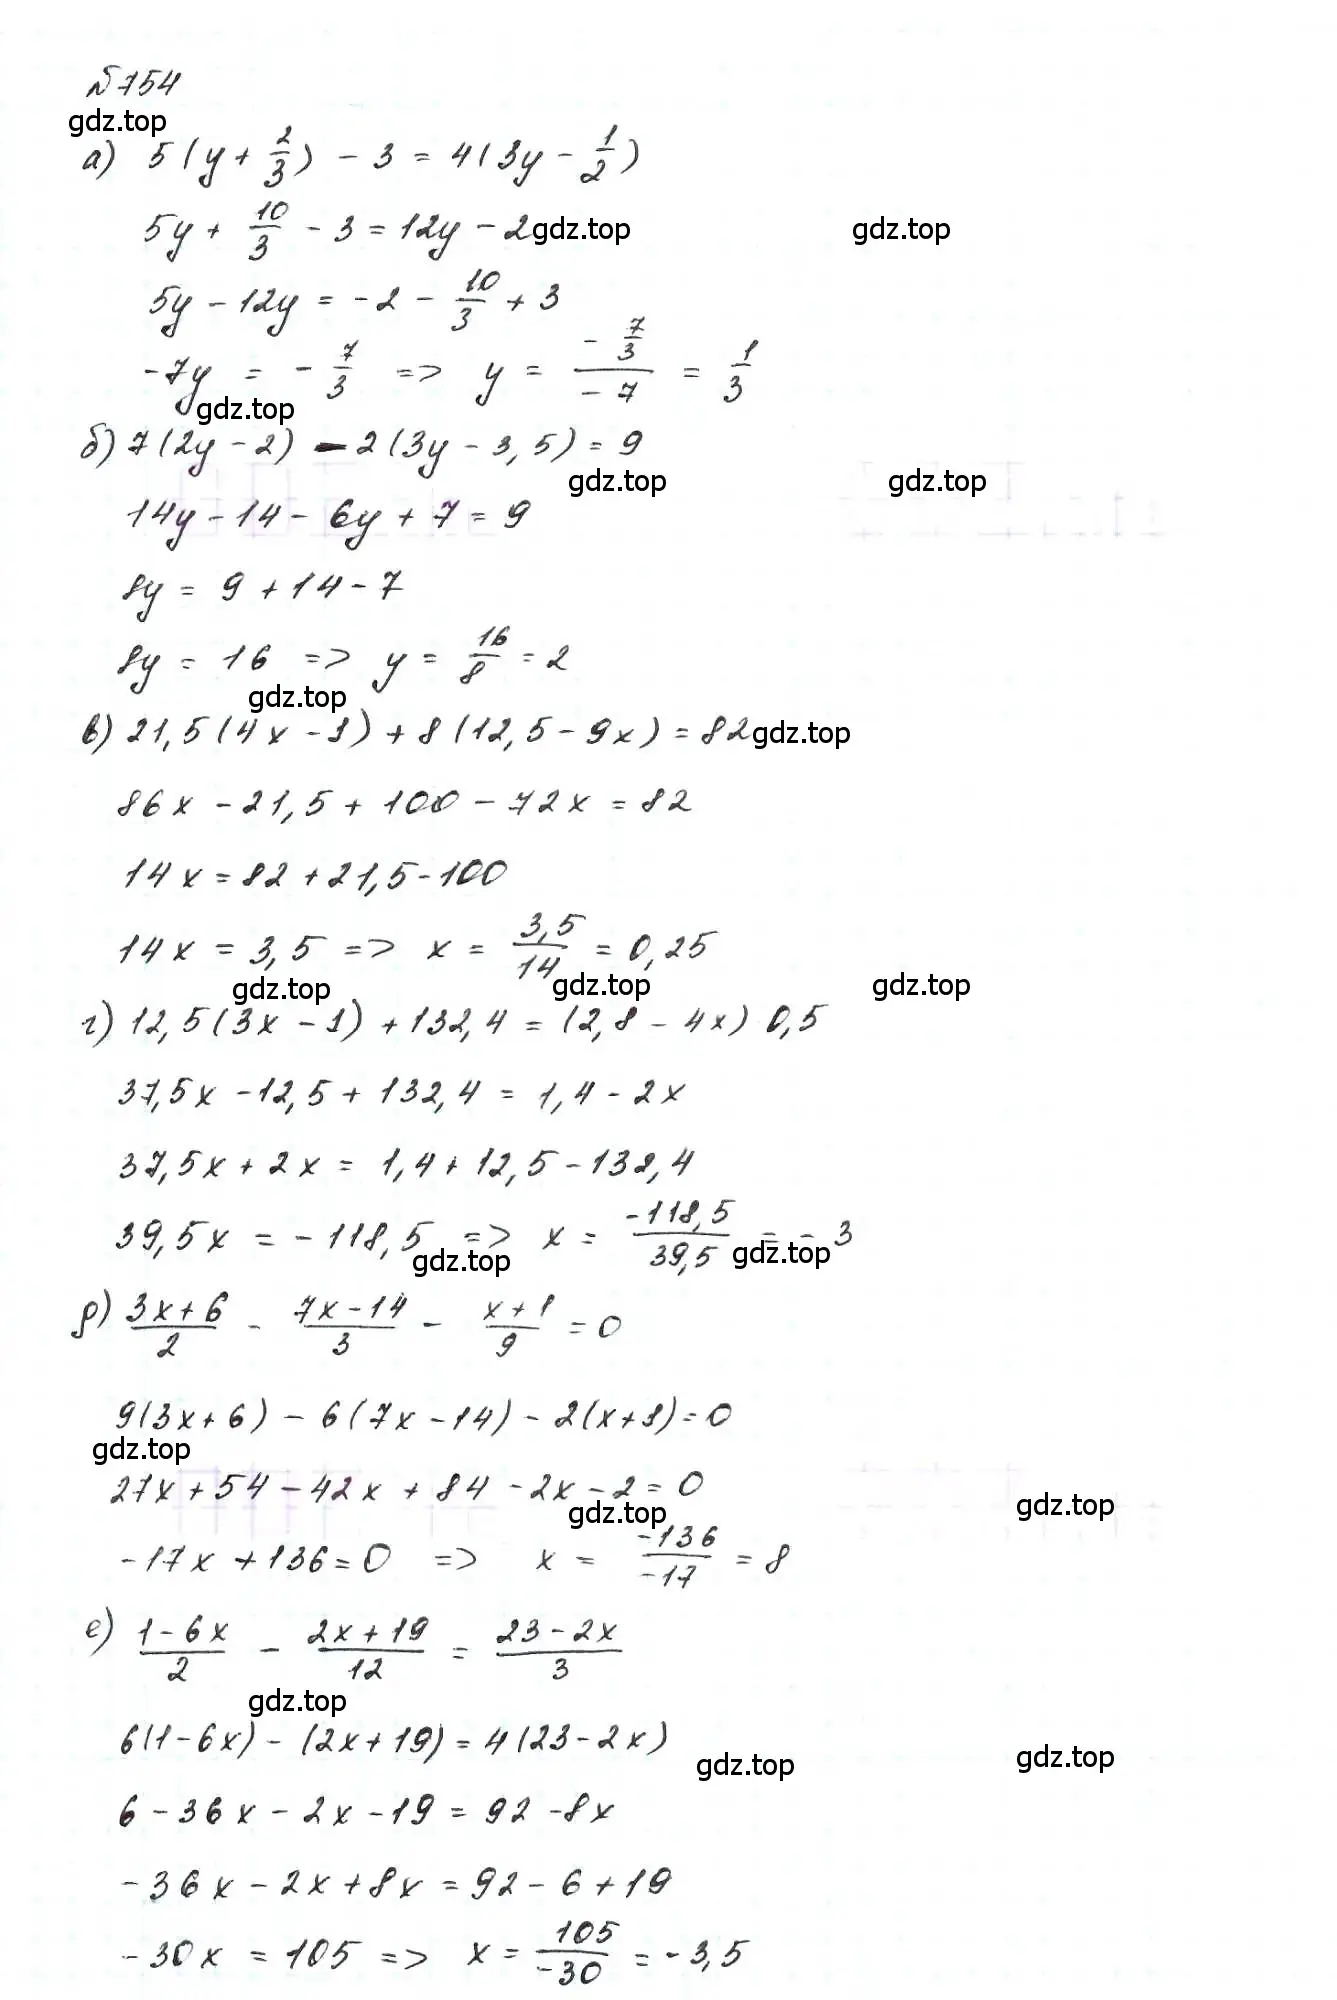 №754
gdz.top
а) 5(y + 2/3) - 3 = 4(3y - 1/2)
5y + 10/3 - 3 = 12y - 2 gdz.top gdz.top
5y - 12y = -2 - 10/3 + 3
-7y = - 7/3 => y = (- 7/3)/(-7) = 1/3
gdz.top
б) 7(2y - 2) - 2(3y - 3,5) = 9
gdz.top gdz.top
14y - 14 - 6y + 7 = 9
8y = 9 + 14 - 7
8y = 16 => y = 16/8 = 2
gdz.top
в) 21,5(4x - 1) + 8(12,5 - 9x) = 82 gdz.top
86x - 21,5 + 100 - 72x = 82
14x = 82 + 21,5 - 100
14x = 3,5 => x = 3,5/14 = 0,25
gdz.top gdz.top gdz.top
г) 12,5(3x - 1) + 132,4 = (2,8 - 4x) 0,5
37,5x - 12,5 + 132,4 = 1,4 - 2x
37,5x + 2x = 1,4 + 12,5 - 132,4
39,5x = -118,5 => x = -118,5/39,5 = -3
gdz.top gdz.top
д) (3x + 6)/2 - (7x - 14)/3 - (x + 1)/9 = 0
9(3x + 6) - 6(7x - 14) - 2(x + 1) = 0
gdz.top
27x + 54 - 42x + 84 - 2x - 2 = 0
gdz.top gdz.top
-17x + 136 = 0 => x = -136/-17 = 8
е) (1 - 6x)/2 - (2x + 19)/12 = (23 - 2x)/3
gdz.top
6(1 - 6x) - (2x + 19) = 4(23 - 2x)
gdz.top gdz.top
6 - 36x - 2x - 19 = 92 - 8x
-36x - 2x + 8x = 92 - 6 + 19
-30x = 105 => x = 105/-30 = -3,5